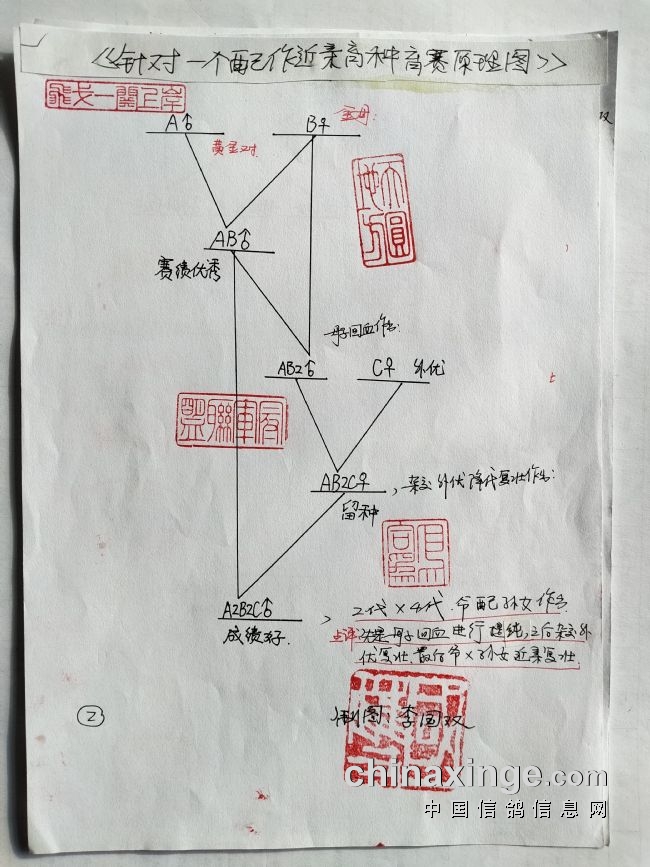 《针对一个配对作近亲育种育赛原理图》
A♂
B♀
黄金对
AB♂
赛绩优秀
母子回血作出:
AB2♂
C♀ 外优
AB2C♀
留种
, 杂交外优降代复壮作出:
A2B2C♂
成绩好.
, 2代×4代.爷配孙女作出
点评:
先是母子回血进行提纯,之后杂交外
优复壮.最后爷×孙女近亲复壮.
制图:李国双
②
chinaxinge.com
中国信鸽信息网